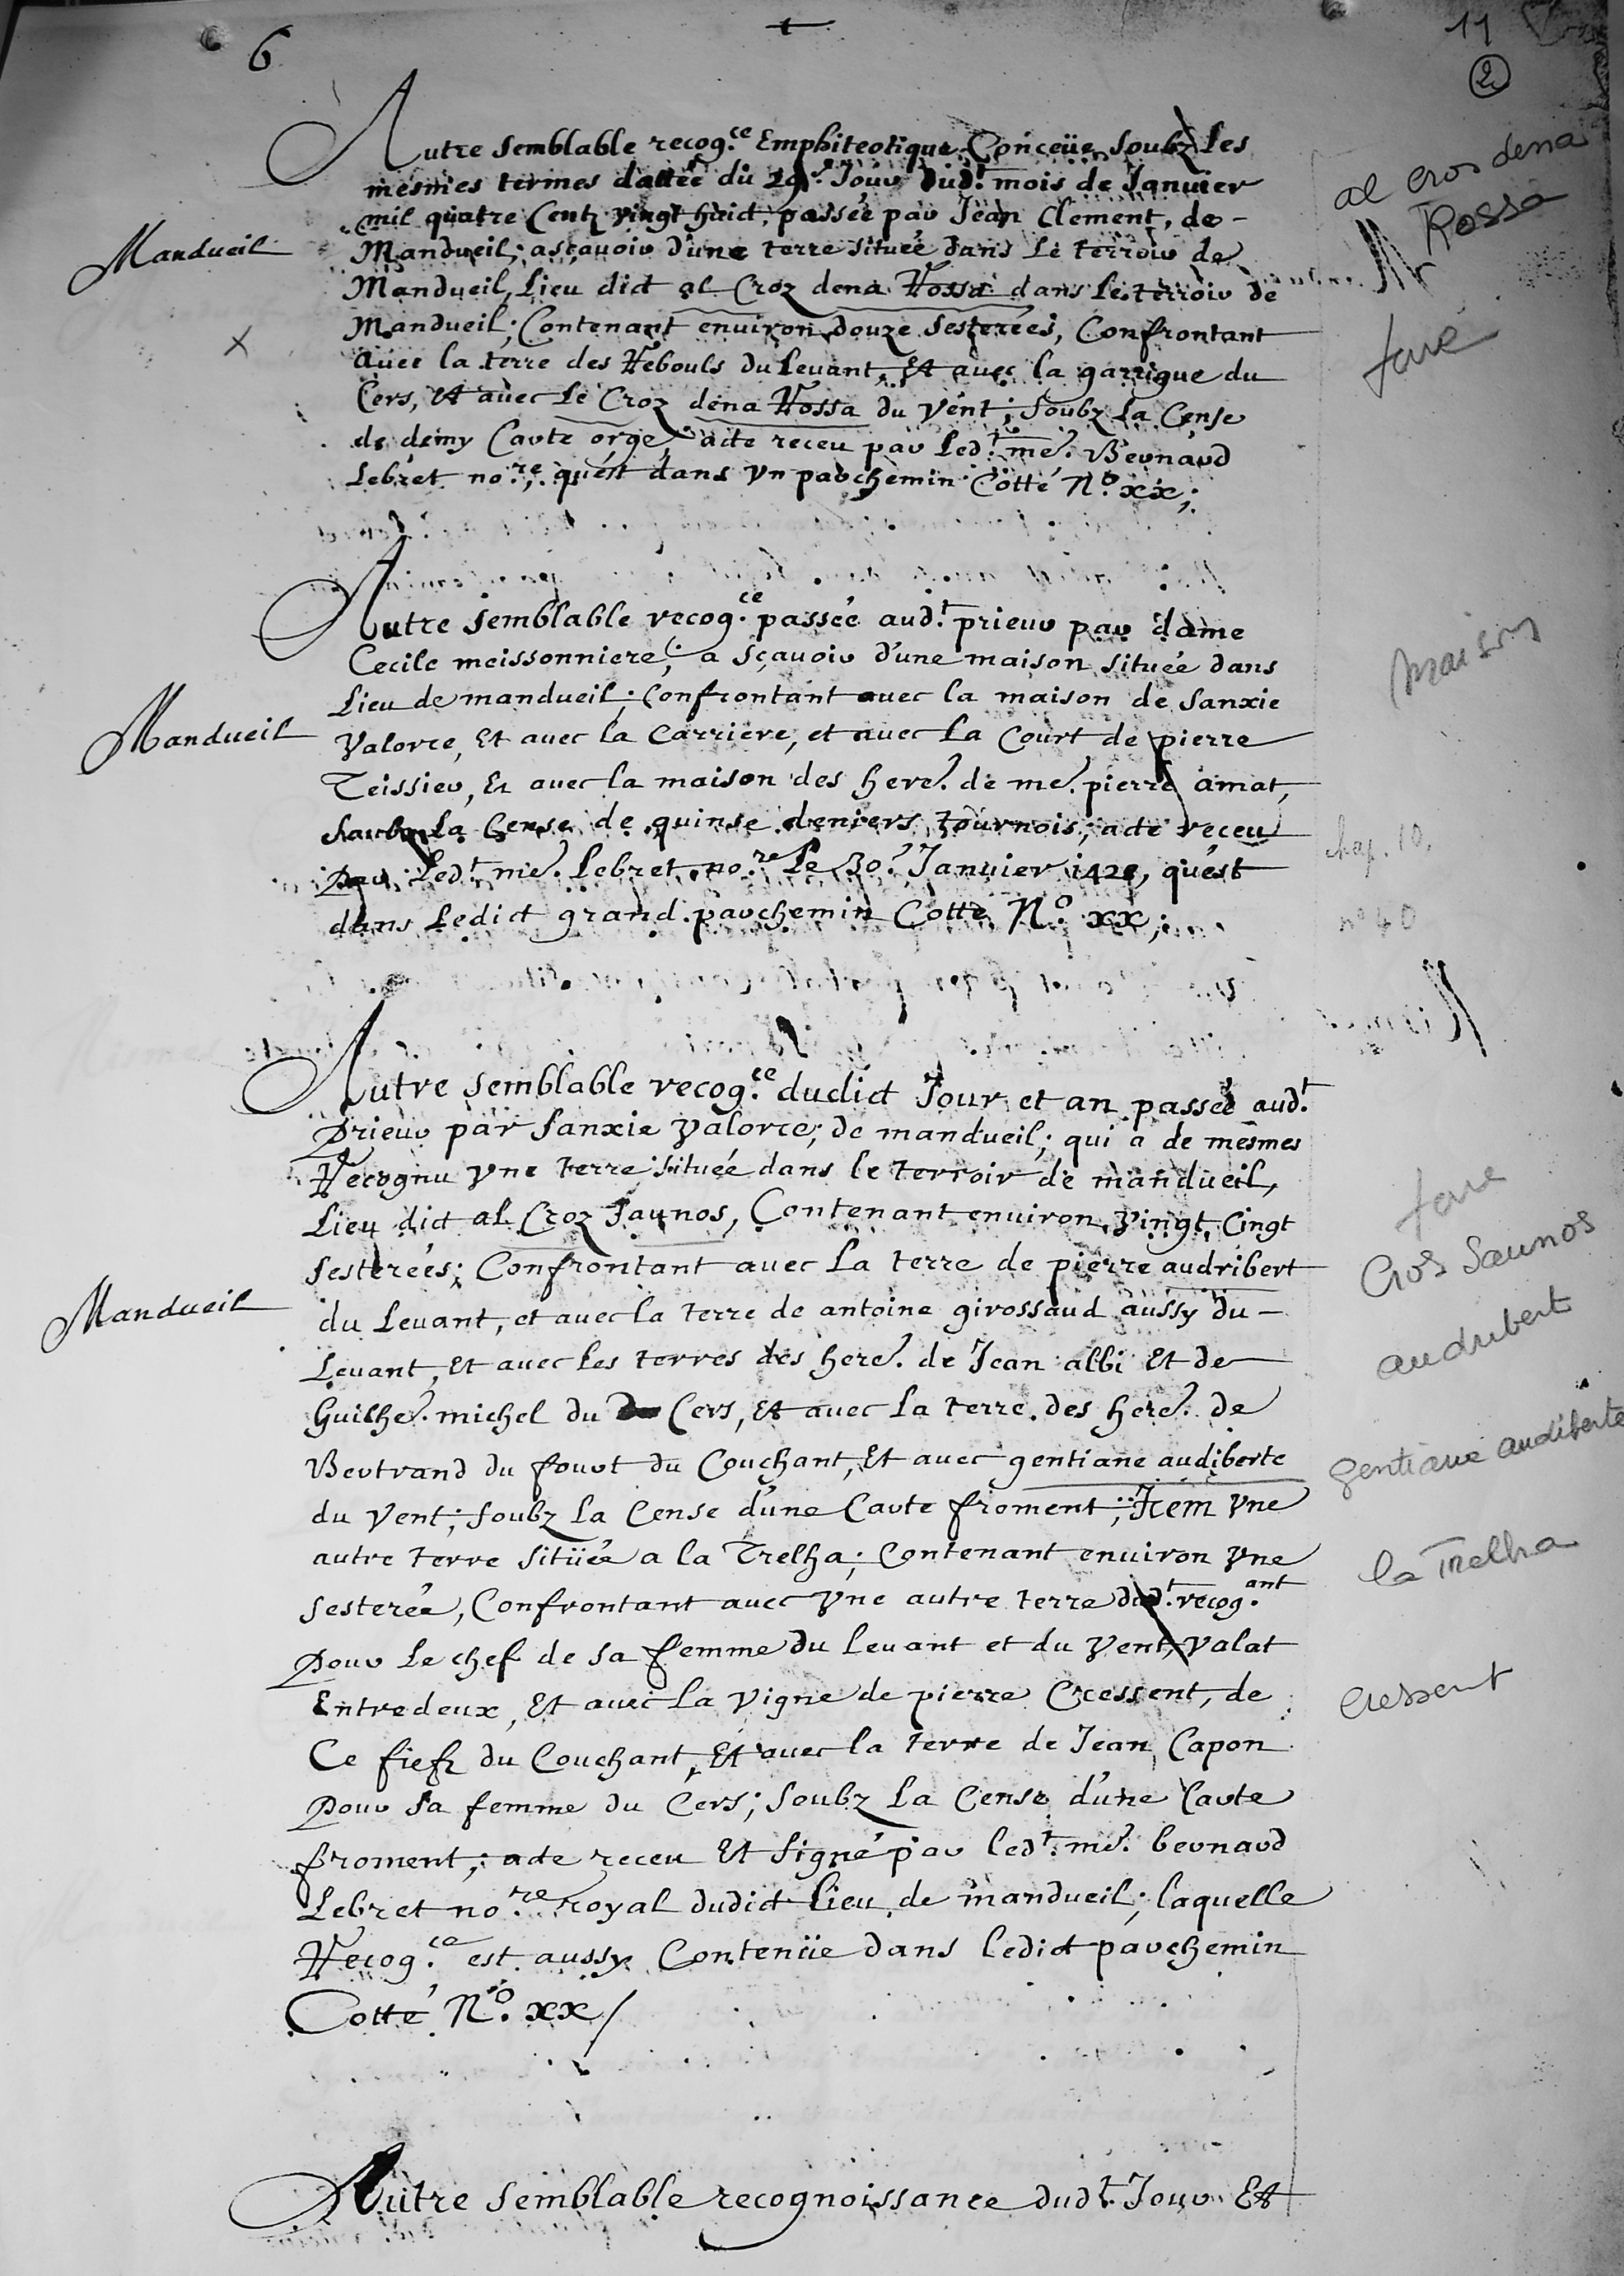 6
11
2
Autre semblable recog.ce Emphiteotique Conceüe soubz Les
mesmes termes dattée du 29.e Jour dud.t mois de Januier
mil quatre Centz vingt huict, passée par Jean Clement, de -
Mandueil; ascauoir d'une terre située dans Le terroir de
Mandueil, Lieu dict al Croz dena Rossa dans Le terroir de
Mandueil; Contenant enuiron douze Sesterées, Confrontant
Auec la terre des Rebouls du Leuant, Et auec la garrigue du
Cers, Et auec Le Croz dena Rossa du Vent; soubz La Cense
de demy Carte orge, acte receu par Led.t me. Bernard
Lebret no.re, qu'est dans Vn parchemin Cotté N.o xx;
Mandueil
x
al cros dena
Rossa
Autre semblable recog.ce passée aud.t prieur par dame
Cecile meissonniere; a sçauoir d'une maison située dans
Lieu de mandueil; Confrontant auec la maison de Sanxie
Valorce, Et auec la Carriere, et auec La Court de pierre
Teissier, Et auec la maison des here. de me. pierre amat,
soubz La Cense de quinse deniers tournois; acte receu
Par Led.t me. Lebret no.re Le 30.e Januier 1428, qu'est
dans Ledict grand parchemin Cotté N.o xx;
Mandueil
maison
chap. 10.
n° 40
Autre semblable recog.ce dudict Jour et an passée aud.t
Prieur par Sanxie Valorce; de mandueil; qui a de mesmes
Recognu Vne terre située dans le terroir de mandueil,
Lieu dict al Croz Saunos, Contenant enuiron Vingt Cingt
sesterées; Confrontant auec La terre de pierre audribert
du Leuant, et auec La terre de antoine girossaud aussy du -
Leuant, Et auec Les terres des here. de Jean albi Et de
Guilhe. michel du Cers, Et auec La terre des here. de
Bertrand du fourt du Couchant, Et auec gentiane audiberte
du Vent; soubz La Cense d'une Carte froment; Item Vne
autre terre sitüée a la Trelha; Contenant enuiron Vne
sesterée, Confrontant auec Vne autre terre dud.t recog.ant
Pour Le chef de sa femme du Leuant et du Vent, Valat
Entredeux, Et auec La Vigne de pierre Cressent, de
Ce fiefz du Couchant, Et auec la terre de Jean Capon
Pour sa femme du Cers; soubz La Cense d'une Carte
froment; acte receu Et signé par led.t me. bernard
Lebret no.re royal dudict Lieu de mandueil; laquelle
Recog.ce est aussy Contenüe dans ledict parchemin
Cotté N.o xx/
Mandueil
Cros Saunos
audribert
gentiane audiberte
la Trelha
cressent
Autre semblable recognoissance dud.t Jour Et